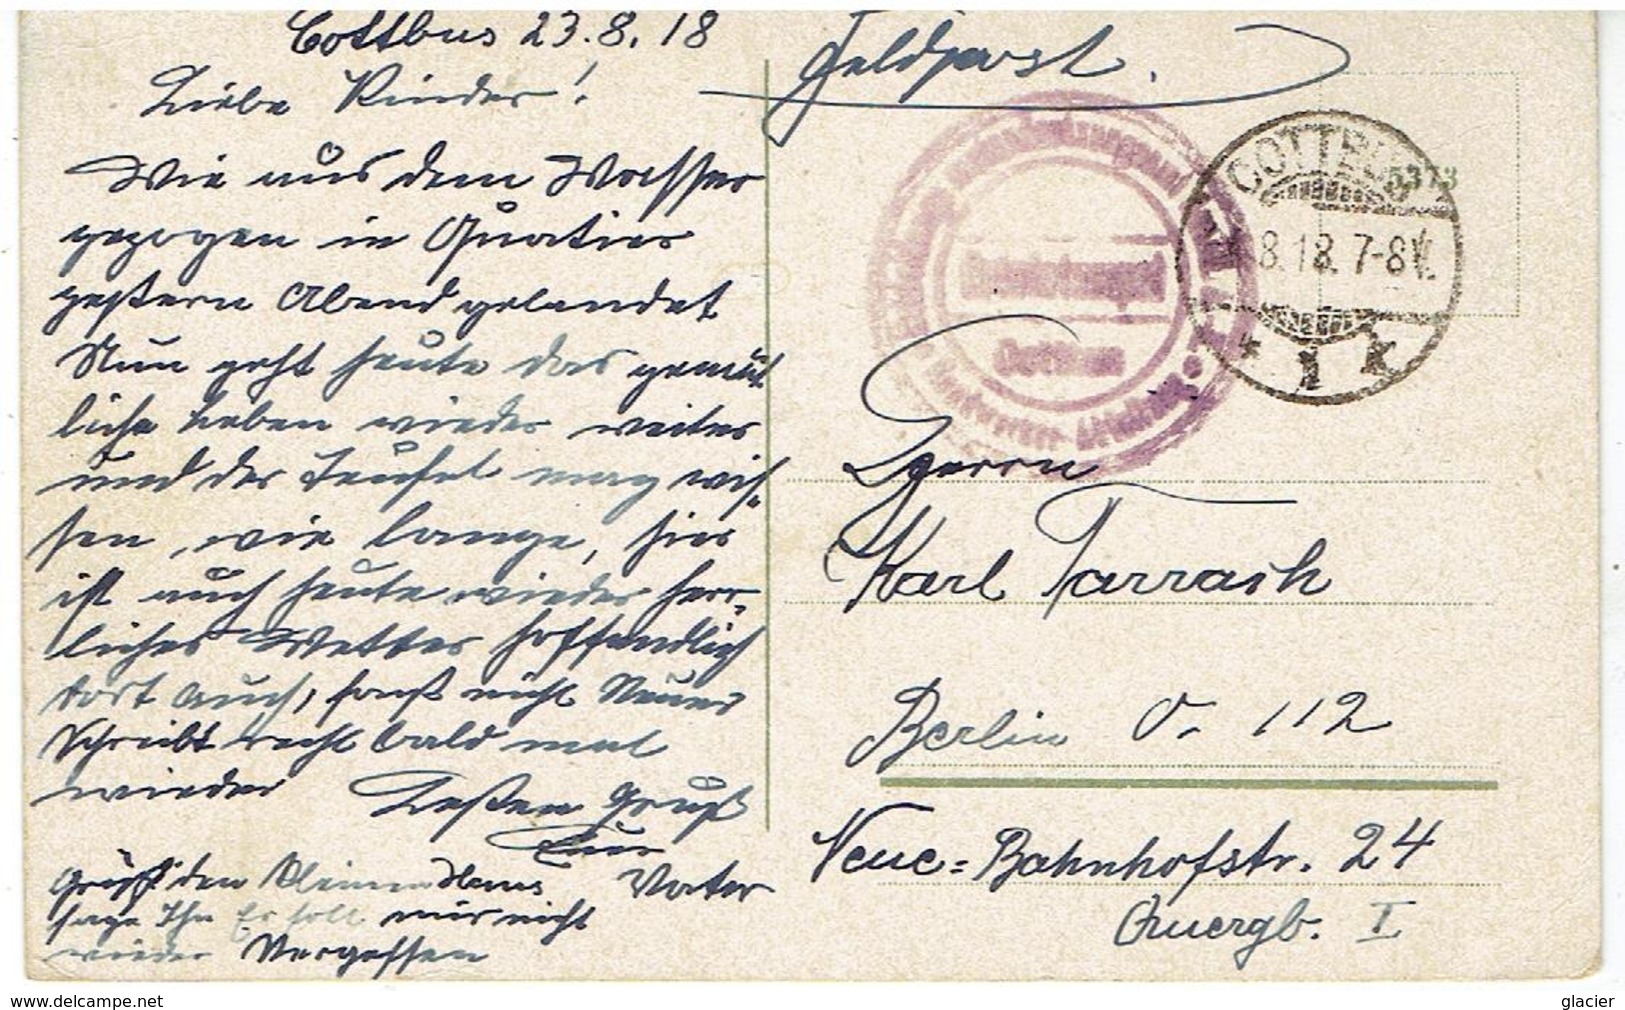 Cottbus 23.8.18
Liebe Kinder!
Wie aus dem Wasser
gezogen in Quatier
gestern Abend gelandet
Nun geht heute das gemüt
liche Leben wieder weiter
und der Teufel mag wis=
sen, wie lange, hier
ist auch heute wieder herr=
liches Wetter hoffendlich
dort auch, sonst nicht Neues
Schreibt recht bald mal
wieder Besten Gruß
Euer
Vater
Grüßt den kleinen Hans
sage Ihn Er soll mir nicht
wieder Vergessen
Feldpost.
COTTBUS
8.18. 7-8V.
* 1 k
5373
Cottbus
Herrn
Karl Tarrasch
Berlin O. 112
Neue=Bahnhofstr. 24
Quergb. I
www.delcampe.net
glacier